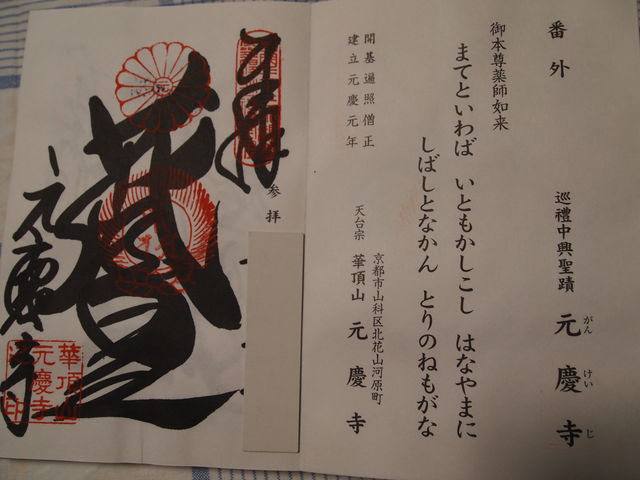 番外
巡禮中興聖蹟 元慶寺
がんけいじ
御本尊薬師如来
まてといわば いともかしこし はなやまに
しばしとなかん とりのねもがな
開基遍照僧正
建立元慶元年
京都市山科区北花山河原町
天台宗 華頂山 元慶寺
参拝
元慶寺
華頂山
元慶寺